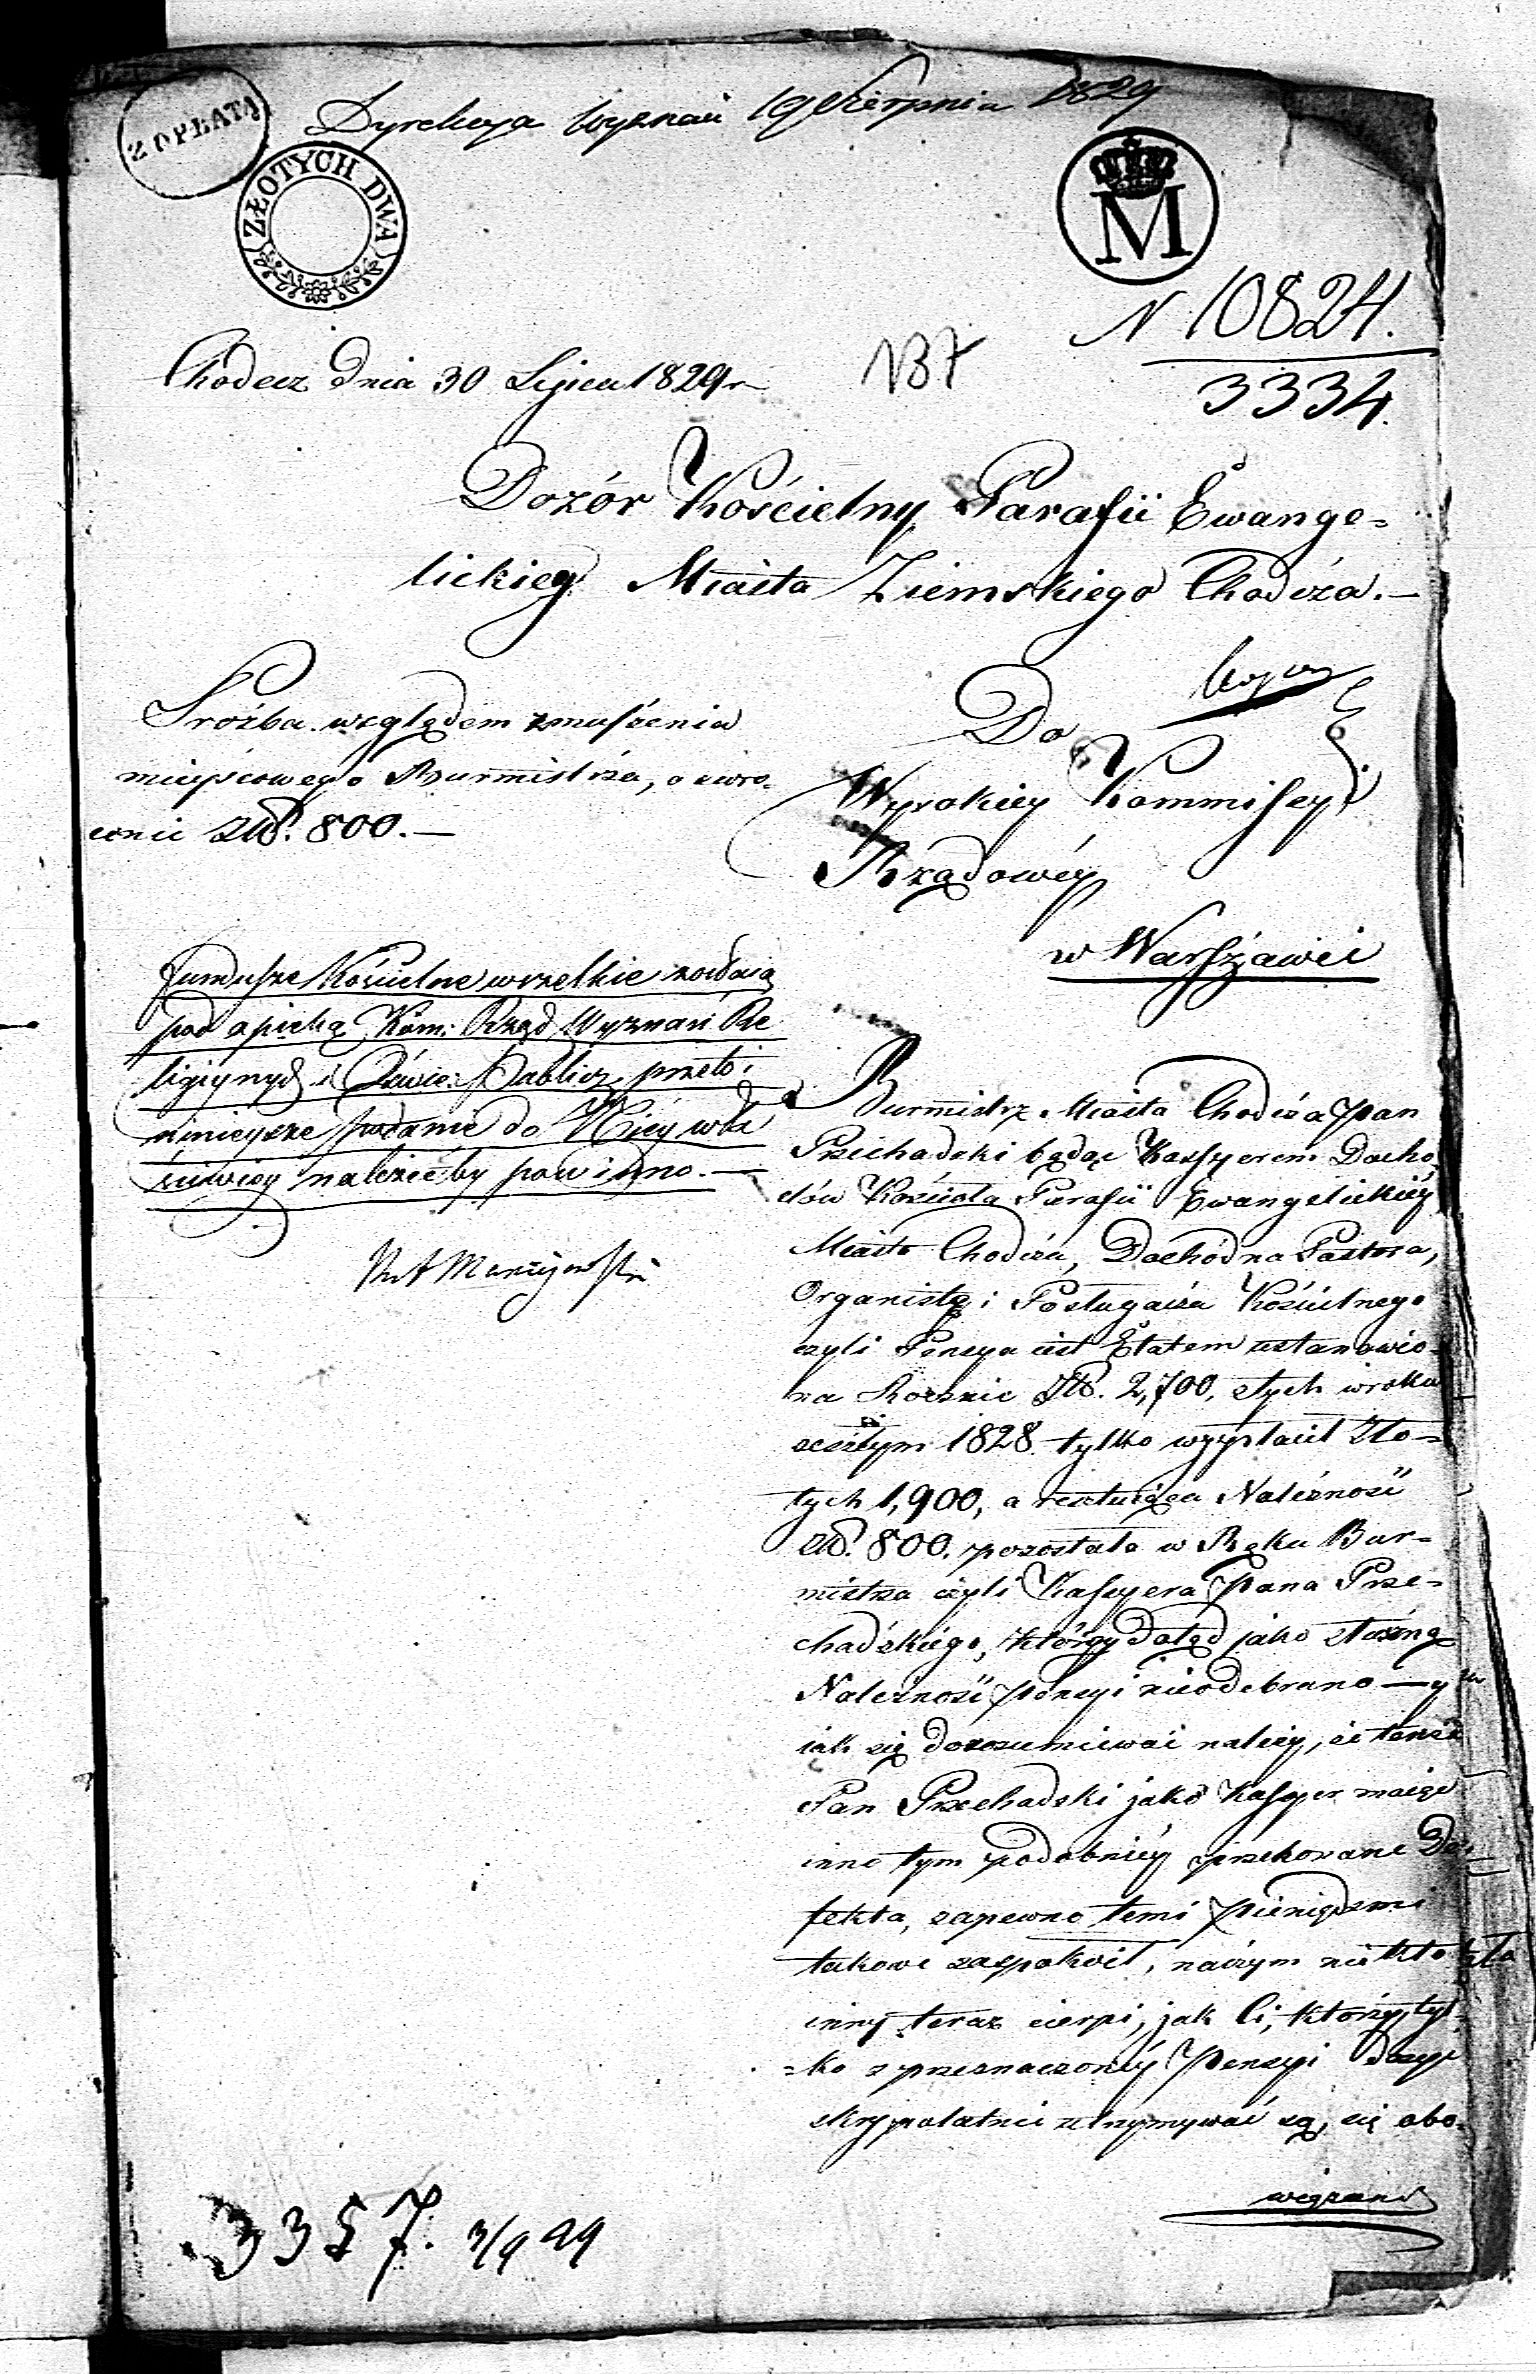 Dyrekcya Wyznań 19 Sierpnia 1829
Z OPŁATĄ
ZŁOTYCH DWA
M
N 10824.
3334.
Chodecz Dnia 30 Lipca 1829 r
137
Dozór Kościelny Parafii Ewange=
lickiey Miasta Ziemskiego Chodcza.—
Proźba względem zmuszenia
mieyscowego Burmistrza, o zwró=
cenie Złt. 800.—
Do
Wysokiey Kommisyi
Rządowéy
w Warszawie
Fundusze Kościelne wszelkie zostaią
pod opieką Kom: Rząd. Wyznań Re
ligiynych i Oświe: Publicz. przeto i
ninieysze podanie do Niéy wła
ściwiey należéćby powinno.—
Burmistrz Miasta Chodcza Pan
Przechadzki będąc Kassyerem Docho
dów Kościoła Parafii Ewangelickiéy
Miasta Chodcza, Dochód na Pastora,
Organistę i Posługacza Kościelnego
czyli Pensya iest Etatem ustanowio=
na Rocznie Złt. 2,700, z tych w roku
zeszłym 1828 tylko wypłacił Zło=
tych 1,900, a resztuiąca Należność
Złt. 800. pozostała w Ręku Bur=
mistrza czyli Kassyera Pana Prze=
chadzkiego, któréy dotąd jako służną
Należność Pensyi nieodebrano —
iak się dorozumiewać należy, że tenże
Pan Przechadzki jako Kassyer maiąc
inne tym podobniéy Dé=
fekta, zapewno temi Pieniędzmi
takowe zaspokoił, na czym nie kto
inny teraz cierpi, jak Ci, którzy tyl=
=ko z przeznaczonéy Pensyi dosyć
utrzymywać są, się obo=
wiązani
3357. 3/9 29